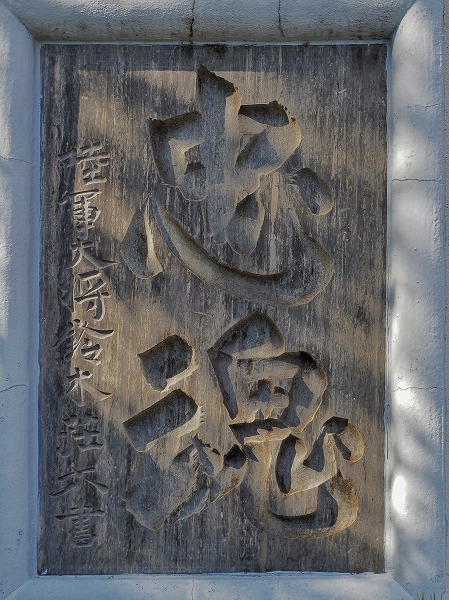 忠魂
陸軍大将鈴木荘六書